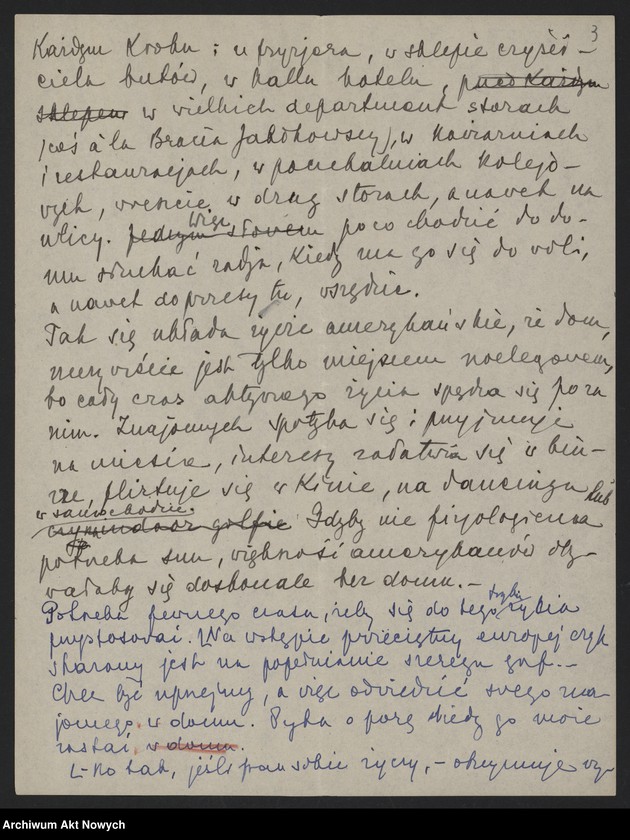 3
Każdym kroku: u fryzjera, w sklepie czyści-
ciela butów, w hallu hotelu, przed każdym
sklepem w wielkich department storach
(coś à la Bracia Jabłkowscy), w kawiarniach
i restauracjach, w poczekalniach kolejo-
wych, wreszcie w drug storach, a nawet na
ulicy. jednym słowem Więc poco chodzić do do-
mu słuchać radja, kiedy ma go się do woli,
a nawet do przesytu, wszędzie.
Tak się układa życie amerykańskie, że dom,
rzeczywiście jest tylko miejscem noclegowem,
bo cały czas aktywnego życia spędza się poza
nim. Znajomych spotyka się i przyjmuje
na mieście, interesy załatwia się w biu-
rze, flirtuje się w kinie, na dancingu lub
w samochodzie.
czy indoor golfie Gdyby nie fizjologiczna
potrzeba snu, większość amerykanów oby-
wałaby się doskonale bez domu. -
Potrzeba pewnego czasu, żeby się do tego trybu życia
przystosować. Na wstępie przeciętny europejczyk
skazany jest na popełnianie szeregu gaf. -
Chce być uprzejmy, a więc odwiedzić swego zna-
jomego w domu. Pyta o porę kiedy go może
zastać w domu.
- No tak, jeśli pan sobie życzy, - otrzymuje